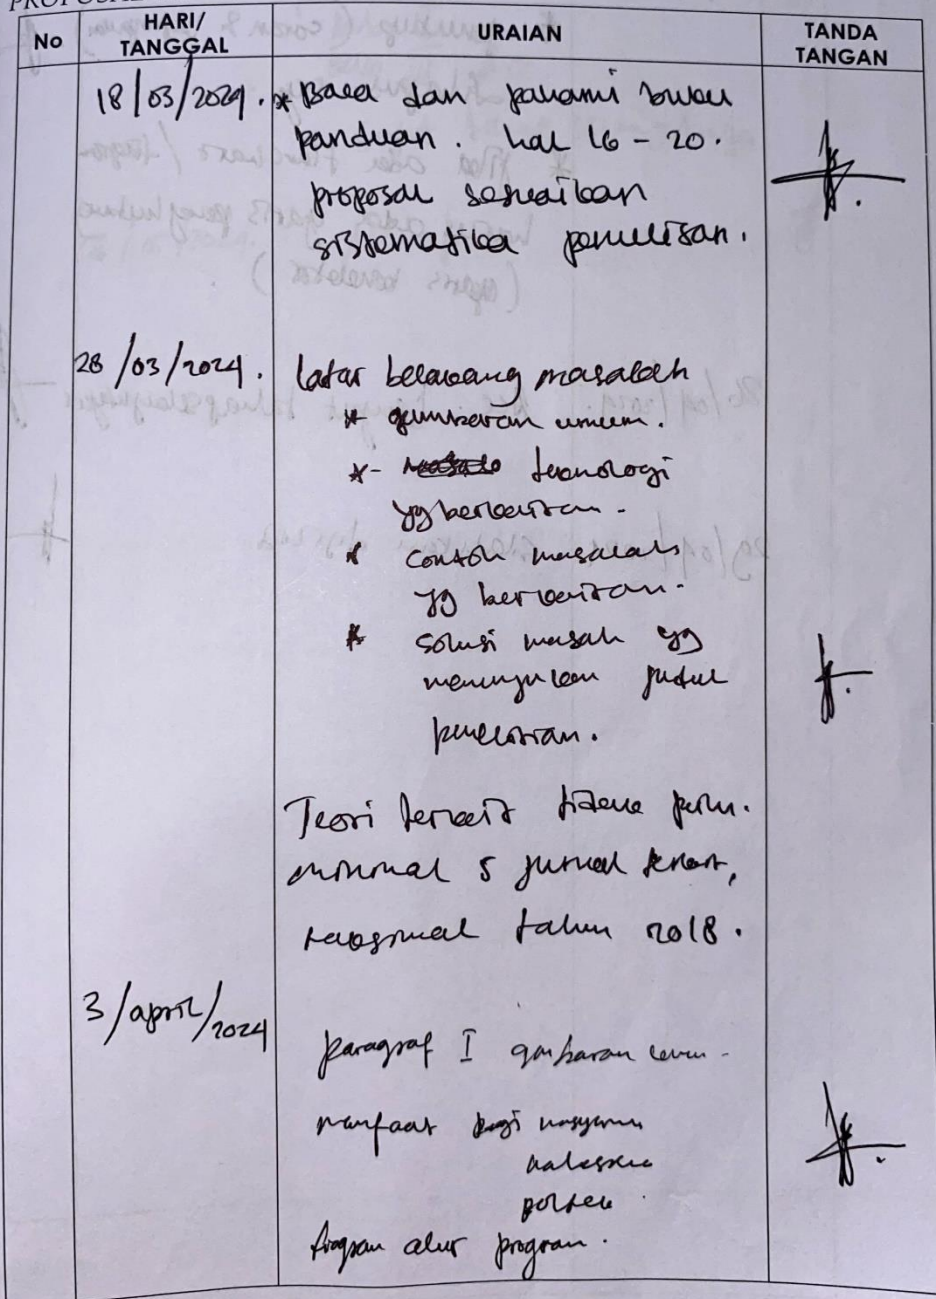 No
HARI/
TANGGAL
URAIAN
TANDA
TANGAN
18/03/2024. * Baca dan pahami buku
panduan. hal 16 - 20.
proposal sesuaikan
sistematika penulisan.
28/03/2024. latar belakang masalah
* gambaran umum.
*- teknologi
yg berkaitan.
* contoh masalah
yg berkaitan.
* solusi masah yg
menunjukan judul
penelitian.
Teori terkait tidak perlu.
minimal 5 jurnal
nasional tahun 2018.
3/april/2024
paragraf I gambaran umum.
manfaat bagi
diagram alur program.